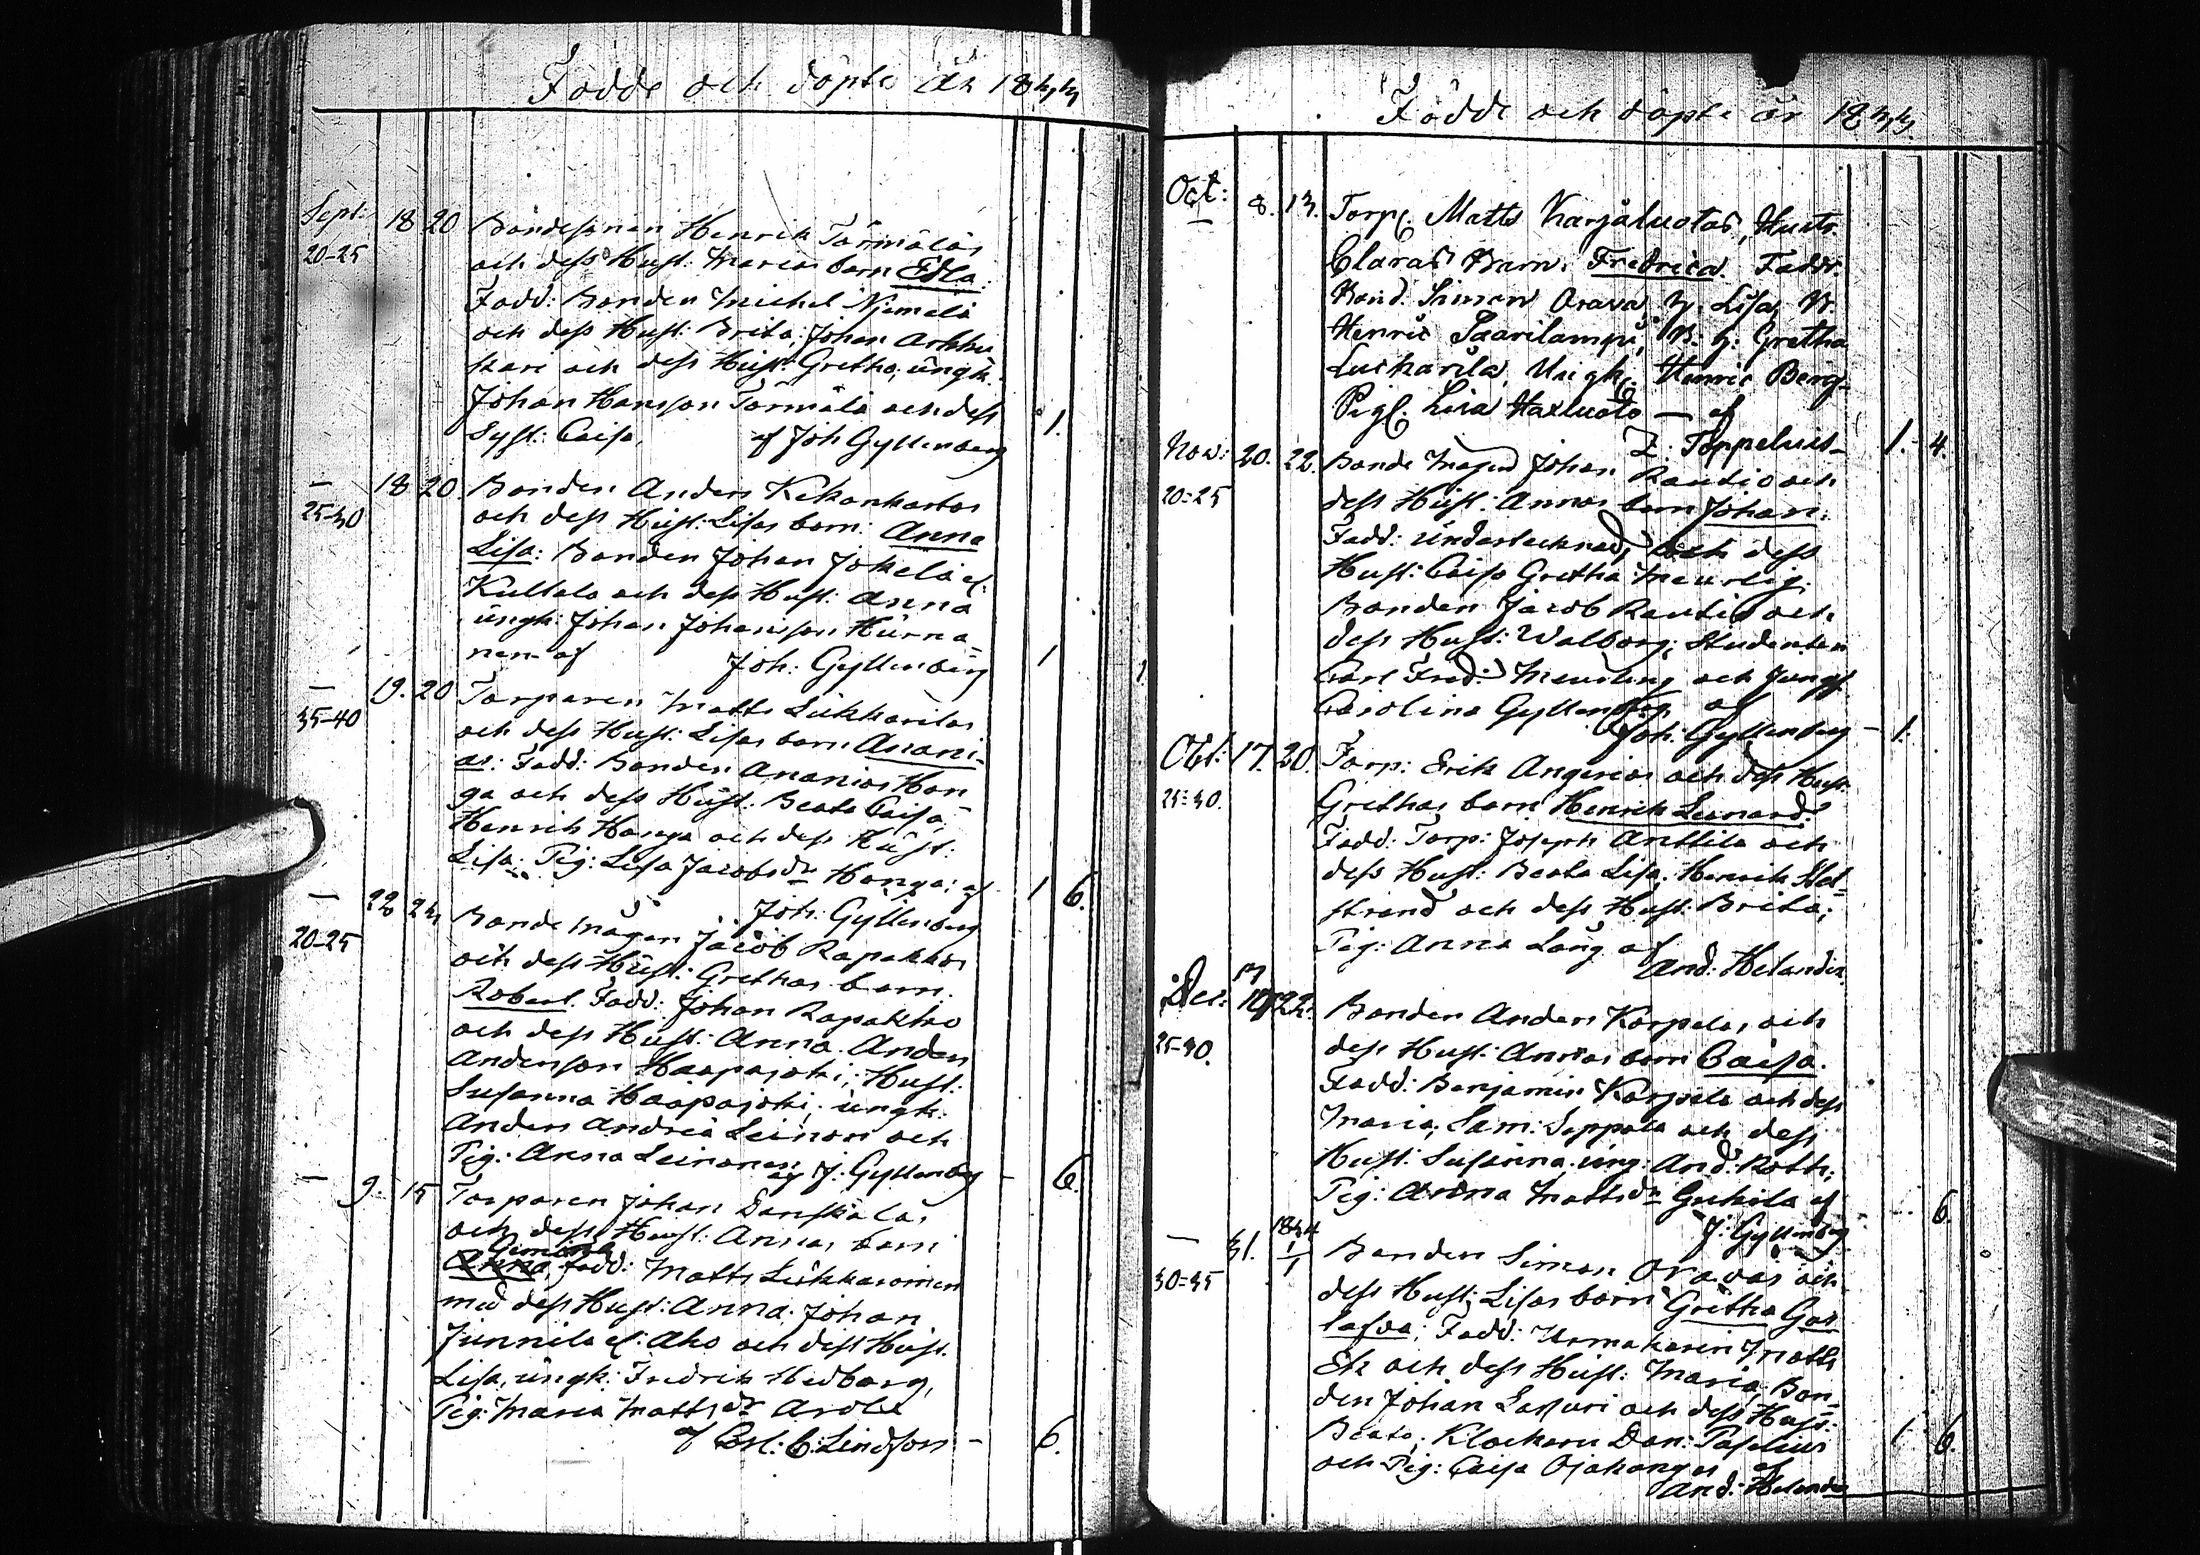 Födde och döpte År 1833
Sept: 18 20 Bondesonen Henrik Törmäläs
20-25 och dess Hust: Marias barn Edla:
Fadd: Bonden Michel Njemelä
och dess Hust: Brita; Johan Arkku
kari och dess Hust: Gretha, ungk:
Johan Hansson Törmälä och dess
Syst: Caisa. af Joh Gyllenberg 1.
— 18 20 Bonden Anders Kekonkartas
25-30 och dess Hust: Lisas barn: Anna
Lisa: Bonden Johan Jokela el.
Kullala och dess Hust: Anna
ungk: Johan Johansson Hürna
nen af Joh: Gyllenberg 1
— 19. 20 Torparen Matts Liukkarilas
35-40 och dess Hust: Lisas barn Anani-
as: Fadd: Bonden Ananias Han
ga och dess Hust: Beata Caisa,
Henrik Hanga och dess Hust:
Lisa; Pig: Lisa Jacobsdr Hanga; af 1 6.
Joh: Gyllenberg
— 22 23 Bonde mågen Jacob Rapakkos
20-25 och dess Hust: Grethas barn:
Robert. Fadd: Johan Rapakko
och dess Hust: Anna. Anders
Andersson Haapajoki; Hust:
Susanna Haapajoki; ungk:
Anders Andrea Leinon och
Pig: Anna Leinonen af J. Gyllenberg - 6.
— 9. 15 Torparen Johan Danskalas
och dess Hust: Annas barn
Anna, Fadd: Matts Liukkaroinen
med dess Hust: Anna. Johan
Junnila el. Aho och dess Hust.
Lisa, ungk: Fredrik Hedborg,
Pig: Maria Mattsdr Arola
af Carl: C: Lindfors - 6.
Födde och döpte år 1833.
Oct: 8. 13. Torp. Matts Karjaluotos, Hustr.
Claras Barn. Fredrica. Faddr.
Bond. Simon Orava, h. Lisa, B.
Henric Saarilampi, B. h. Gretha
Luckarila, Ungk. Henric Berg-
Pig. Lisa Haxluoto — af
Z. Toppelius- 1. 4.
Nov: 20. 22. Bonde mågen Johan Rautio och
20-25 dess Hust: Annas barn Johan:
Fadd: undertecknad, och dess
Hust: Caisa Gretha Meurling.
Bonden Jacob Rautio och
dess Hust: Walborg; Studenten
Carl Fred: Meurling och Jungf
Carolina Gyllenberg af
Joh: Gyllenberg - 1.
Oct: 17. 20. Torp: Erik Angerias och dess Hust:
25-30. Grethas barn Henrik Leonard.
Fadd: Torp: Joseph Anttila och
dess Hust: Beata Lisa; Henrik Hel-
strand och dess Hust: Brita;
Pig: Anna Lång af
And: Helander.
Dec: 17 22. Bonden Anders Korpelas och
25-30. dess Hust: Annas barn Caisa.
Fadd: Benjamin Korpela och dess
Maria; Sam: Seppälä och dess
Hust: Susanna; ung: And: Roth;
Pig: Anna Mattsdr Gukila af 6.
J: Gyllenberg
— 31. 1834 1/1 Bonden Simon Oravas och
30-35 dess Hust: Lisas barn Gretha Gus
tafva; Fadd: Urmakaren Matts
Ek och dess Hust: Maria; Bon-
den Johan Lasuri och dess Hust:
Beata; Klockaren Dan: Pajelius 1 6.
och Pig: Caisa Ojakangas af
And: Helander